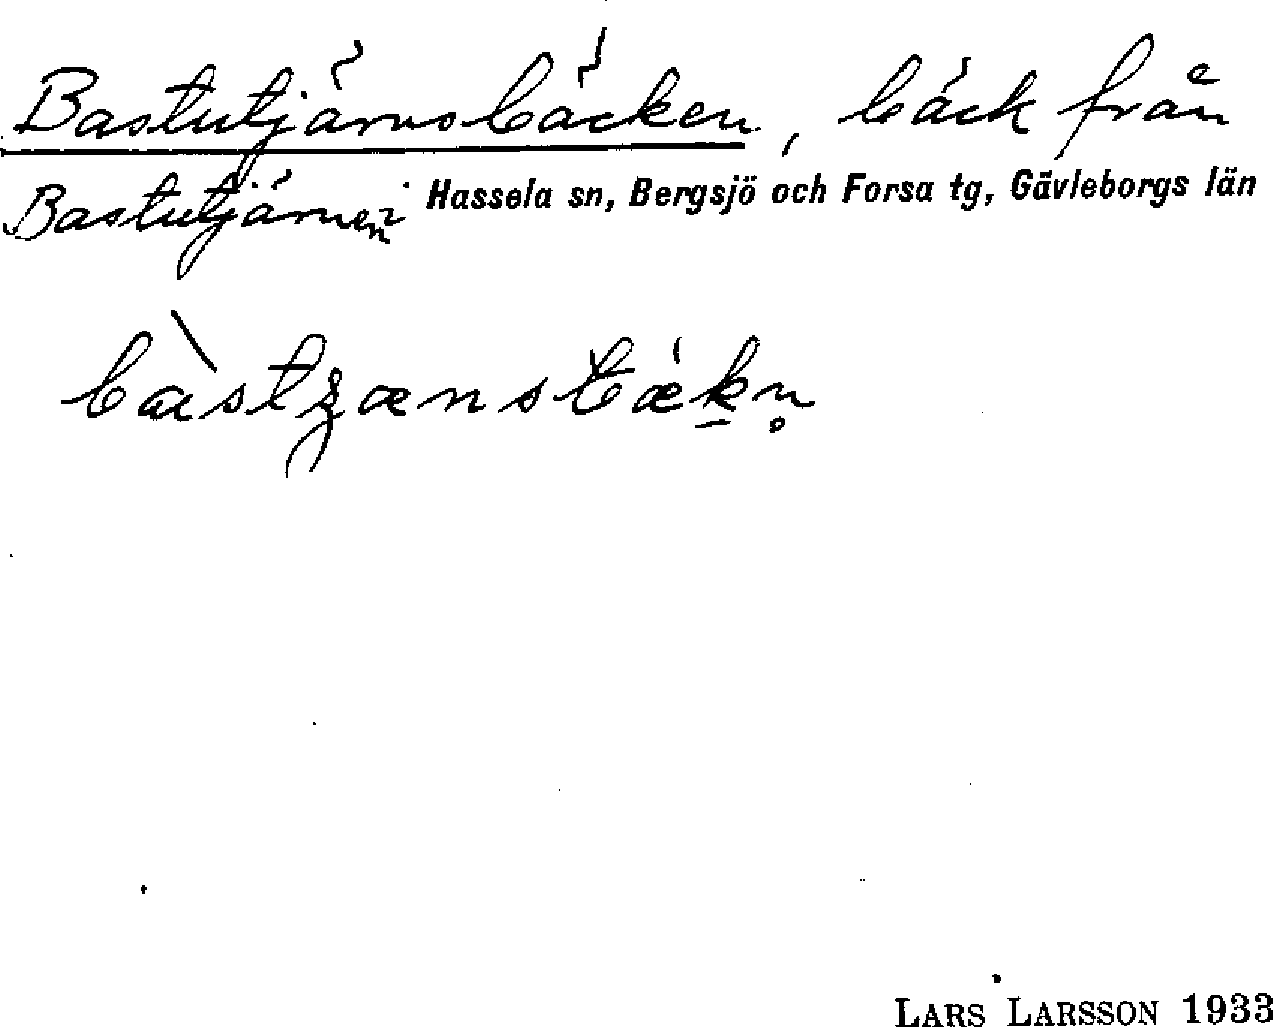 Bastutjärnsbäcken, bäck från
Bastutjärnen Hassela sn, Bergsjö och Forsa tg, Gävleborgs län
LARS LARSSON 1933